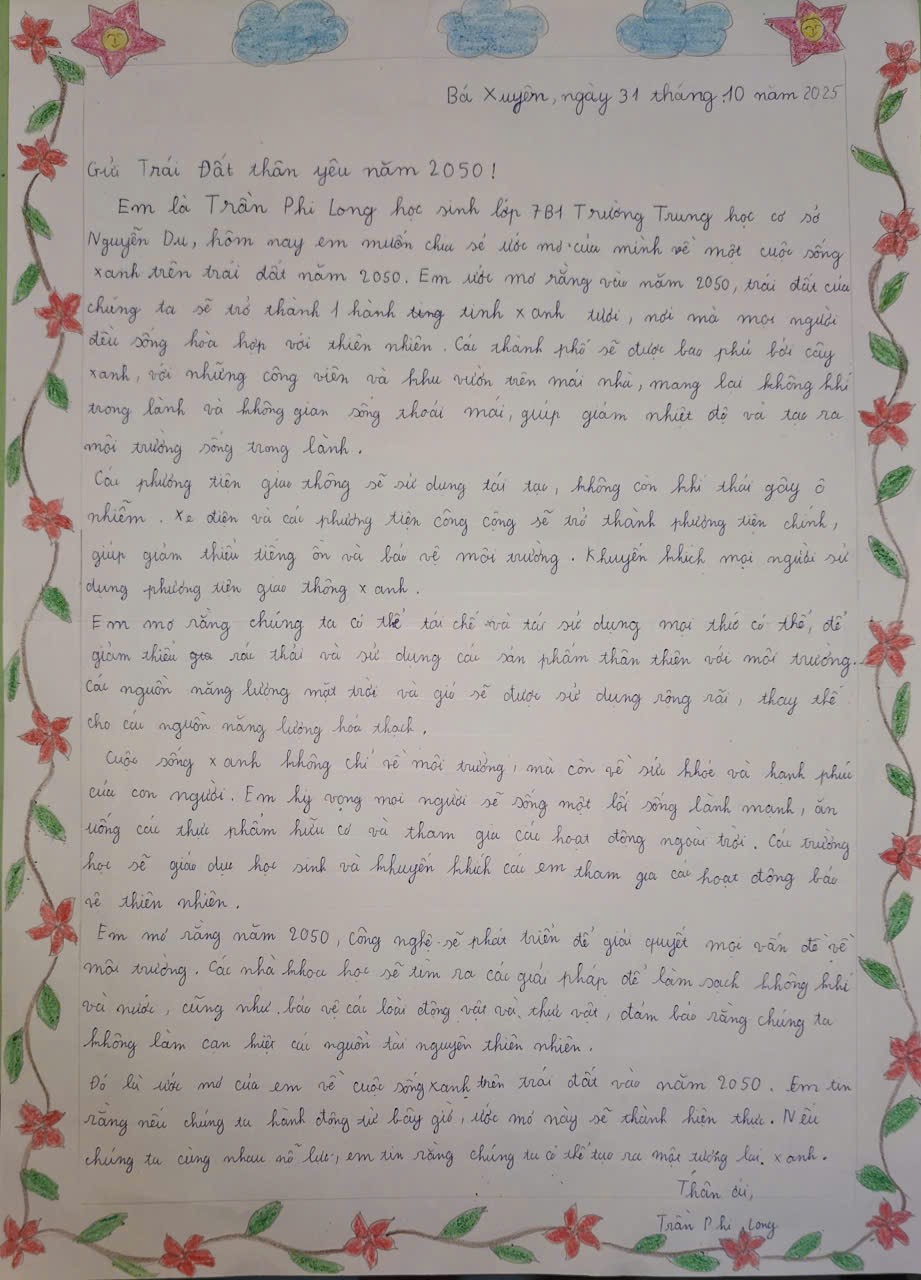 Bá Xuyên, ngày 31 tháng 10 năm 2025
Gửi Trái Đất thân yêu năm 2050!
Em là Trần Phi Long học sinh lớp 7B1 Trường Trung học cơ sở
Nguyễn Du, hôm nay em muốn chia sẻ ước mơ của mình về một cuộc sống
xanh trên trái đất năm 2050. Em ước mơ rằng vào năm 2050, trái đất của
chúng ta sẽ trở thành 1 hành ting tinh xanh tươi, nơi mà mọi người
đều sống hòa hợp với thiên nhiên. Các thành phố sẽ được bao phủ bởi cây
xanh, với những công viên và khu vườn trên mái nhà, mang lại không khí
trong lành và không gian sống thoải mái, giúp giảm nhiệt độ và tạo ra
môi trường sống trong lành.
Các phương tiện giao thông sẽ sử dụng tái tạo, không còn khí thải gây ô
nhiễm. Xe điện và các phương tiện công cộng sẽ trở thành phương tiện chính,
giúp giảm thiểu tiếng ồn và bảo vệ môi trường. Khuyến khích mọi người sử
dụng phương tiện giao thông xanh.
Em mơ rằng chúng ta có thể tái chế và tái sử dụng mọi thứ có thể, để
giảm thiểu rác thải và sử dụng các sản phẩm thân thiện với môi trường.
Các nguồn năng lượng mặt trời và gió sẽ được sử dụng rộng rãi, thay thế
cho các nguồn năng lượng hóa thạch.
Cuộc sống xanh không chỉ về môi trường, mà còn về sức khỏe và hạnh phúc
của con người. Em hy vọng mọi người sẽ sống một lối sống lành mạnh, ăn
uống các thực phẩm hữu cơ và tham gia các hoạt động ngoài trời. Các trường
học sẽ giáo dục học sinh và khuyến khích các em tham gia các hoạt động bảo
vệ thiên nhiên.
Em mơ rằng năm 2050, công nghệ sẽ phát triển để giải quyết mọi vấn đề về
môi trường. Các nhà khoa học sẽ tìm ra các giải pháp để làm sạch không khí
và nước, cũng như bảo vệ các loài động vật và thực vật, đảm bảo rằng chúng ta
không làm cạn kiệt các nguồn tài nguyên thiên nhiên.
Đó là ước mơ của em về cuộc sống xanh trên trái đất vào năm 2050. Em tin
rằng nếu chúng ta hành động từ bây giờ, ước mơ này sẽ thành hiện thực. Nếu
chúng ta cùng nhau nỗ lực, em tin rằng chúng ta có thể tạo ra một tương lai xanh.
Thân ái,
Trần Phi Long